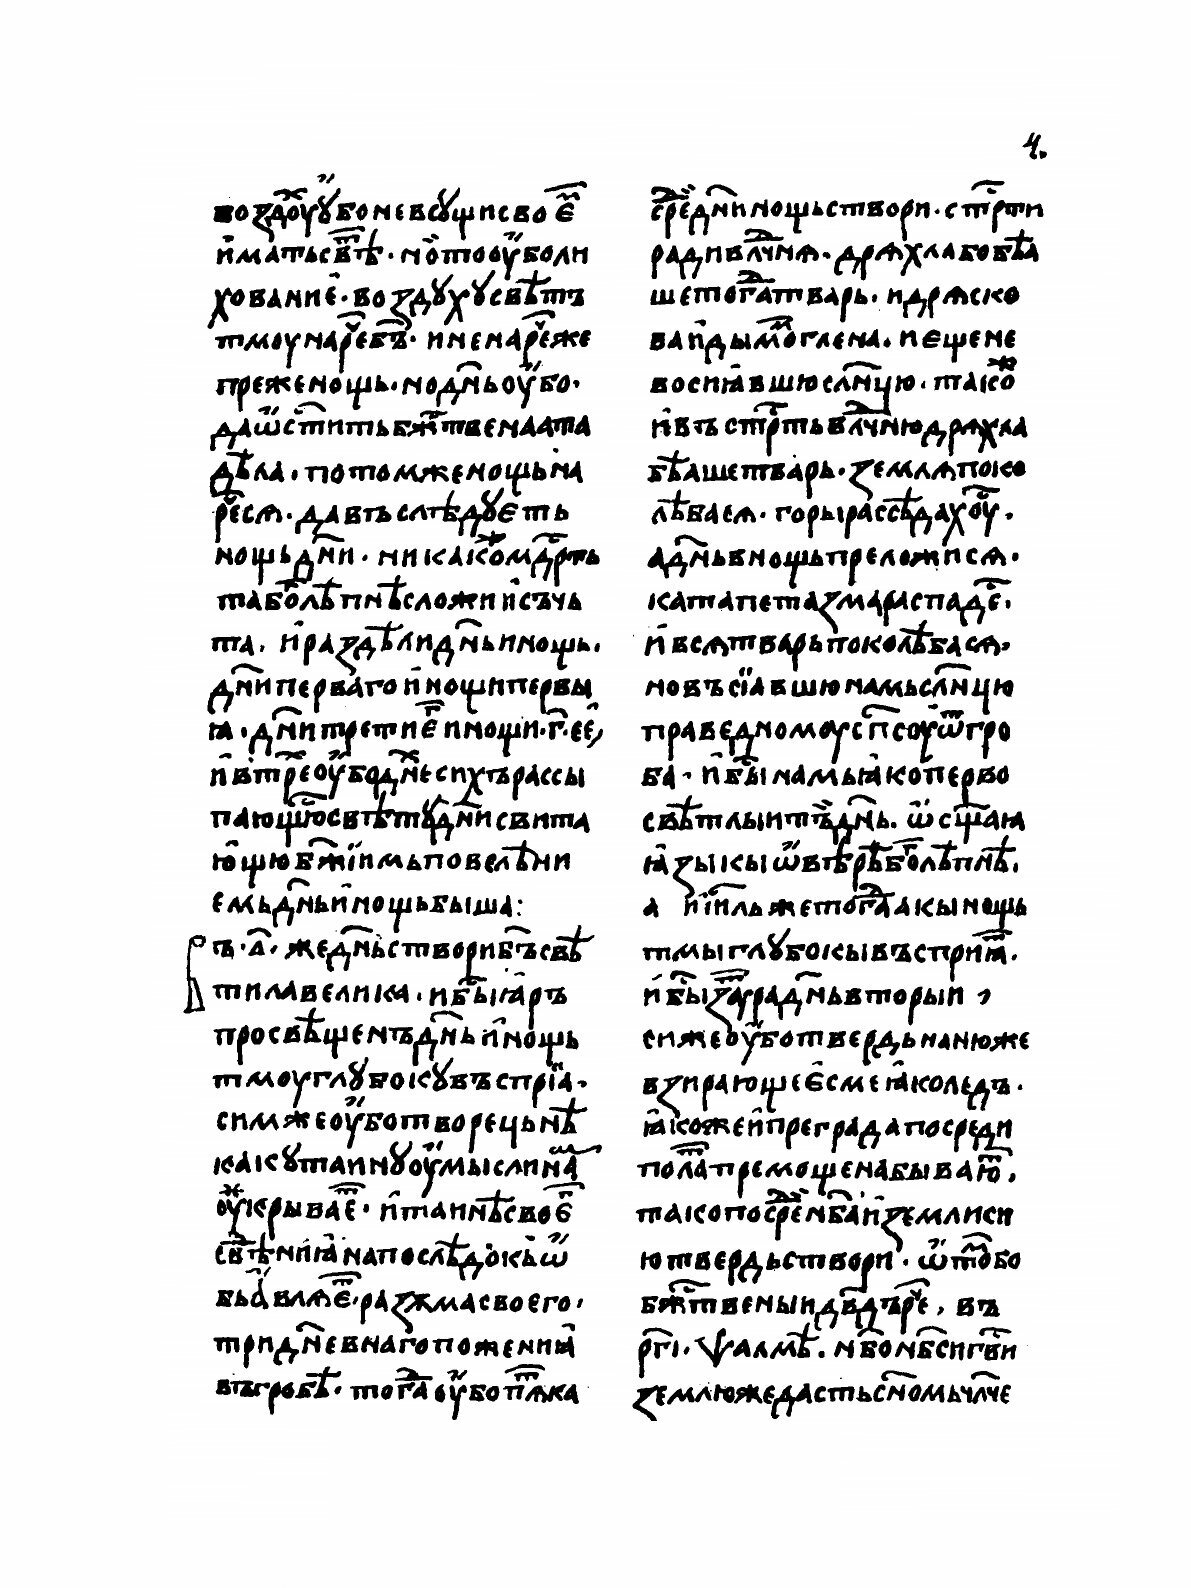 4.
воздоух̾ ѹбо не в сѹщи сво е҆м̾
и҆мать свѣт̾ · но то ѹбо ли
хование · воздѹхѹ свѣтъ
тмоу нарєч̾ бг҃ъ · и не нарєч̾ же
преже нощь · но дн҃ь ѹбо ·
да ѿст҃ить бж҃твенаа та
дѣла · потом же нощь на
реч̾ сѧ · да въслѣдѹєть
нощь дн҃и · никако ж̾ мдр҃ть
та бг҃олѣпнѣ сложи и счъ
та · и раздѣли дн҃ь и нощь ·
дн҃и перваго и нощи первы
ꙗ · дн҃и третиег̾ и нощи · г҃ · ее,
и в трех̾ ѹбо дн҃ех̾ сихъ рассы
пающюс̾ свѣтѹ дн҃и свита
ющю бж҃їимь повелѣни
емь дн҃ь и нощь быша :
ъ · а҃ · же дн҃ь створи бг҃ъ свѣ
тила велика · и быⷭ꙽ꙗръ
просвѣщенъ дн҃ь и нощь
тмоу глѹбокѹ въсприа ·
сим же ѹбо творець нѣ
какѹ таинѹ ѹмыслинаа
ѹкрываеⷮ · и таинѣ своеⷢ
свⷮѣниꙗ на послѣдокъ ѿ
бьавлѧеⷮ · разѹма своего ·
триднⷡ҃наго положениꙗ
въ гробѣ · тогⷣа ѹбо пⷮѧка
среⷣ дн҃и нощь створи · стрⷭ҃ти
ради влⷣчнѧ · дрѧхла бо бѣа
ше тогⷣа тварь · и дрѧско
ва и дымⷨ оглена · и еще не
восиꙗвшю слн҃цю · такоⷤ
и въ стрⷭ҃ть влⷣчню дрѧхла
бѣаше тварь · землѧ поко
лѣбасѧ · горы рассѣдахоуⷭ ·
а дн҃ь в нощь преложисѧ ·
катапетазма распадеⷭ ·
и всѧ тварь поколѣбасѧ ·
новъсиꙗвшю намь слн҃цю
праведномоу сп҃соу ѿ гро
ба · и быⷭ намь ꙗко перво
свѣтлыи тъ дн҃ь · ѿсщаꙗ
ꙗзыкы ѿ вѣры бг҃олѣпнѣ ·
а и҆їиль же тогⷣа акы нощь
тмы глѹбокы въсприꙗⷮ ·
и быⷭ заⷮра дн҃ь вторыи ,
си же ѹбо твердь на нюже
взирающе есме ꙗко ледъ ·
ꙗко же и преграда посреди
полаⷮ премощена бываюⷮ ·
тако посреⷣ нб҃а и земли си
ю твердь створи · ѿ тоⷨ бо
бжⷭ҃твеныи дв҃дъ речⷱ, въ
рг҃і · ѱалмѣ · нб҃о нб҃си гв҃и
землю же дасть сн҃омь члч҃е